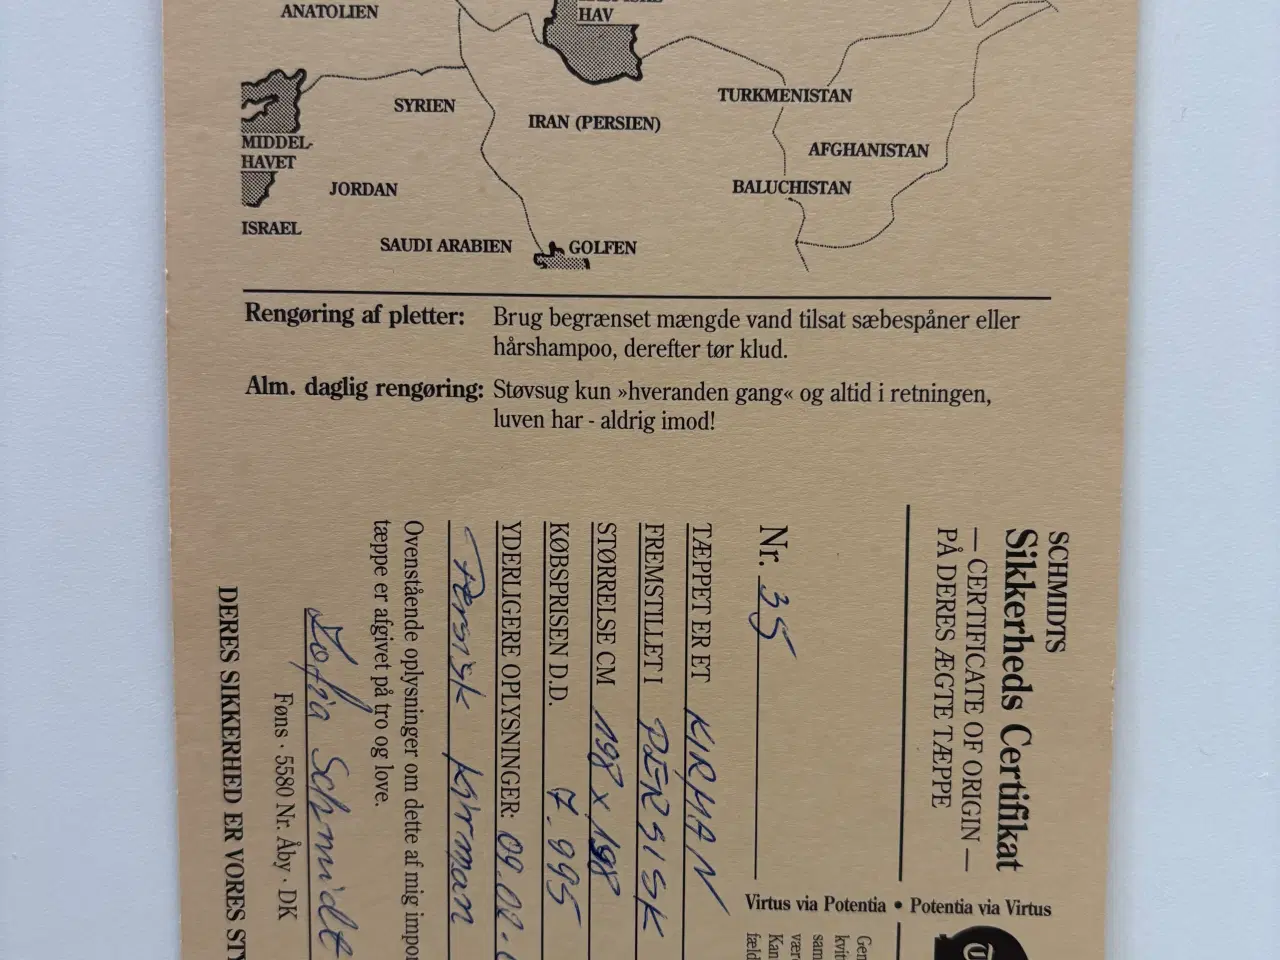 ANATOLIEN
HAV
SYRIEN
TURKMENISTAN
IRAN (PERSIEN)
MIDDEL-
HAVET
AFGHANISTAN
JORDAN
BALUCHISTAN
ISRAEL
SAUDI ARABIEN
GOLFEN
Rengøring af pletter: Brug begrænset mængde vand tilsat sæbespåner eller
hårshampoo, derefter tør klud.
Alm. daglig rengøring: Støvsug kun »hveranden gang« og altid i retningen,
luven har - aldrig imod!
SCHMIDTS
Sikkerheds Certifikat
— CERTIFICATE OF ORIGIN —
PÅ DERES ÆGTE TÆPPE
Nr. 35
TÆPPET ER ET KIRMAN
FREMSTILLET I PERSISK
STØRRELSE CM 198 x 198
KØBSPRISEN D.D. 7.995
YDERLIGERE OPLYSNINGER: 09.02.
Persisk Kirman
Ovenstående oplysninger om dette af mig impor
tæppe er afgivet på tro og love.
Sofia Schmidt
Føns · 5580 Nr. Åby · DK
DERES SIKKERHED ER VORES STY
Virtus via Potentia • Potentia via Virtus
Gen
kvit
sam
være
Kan
fæld